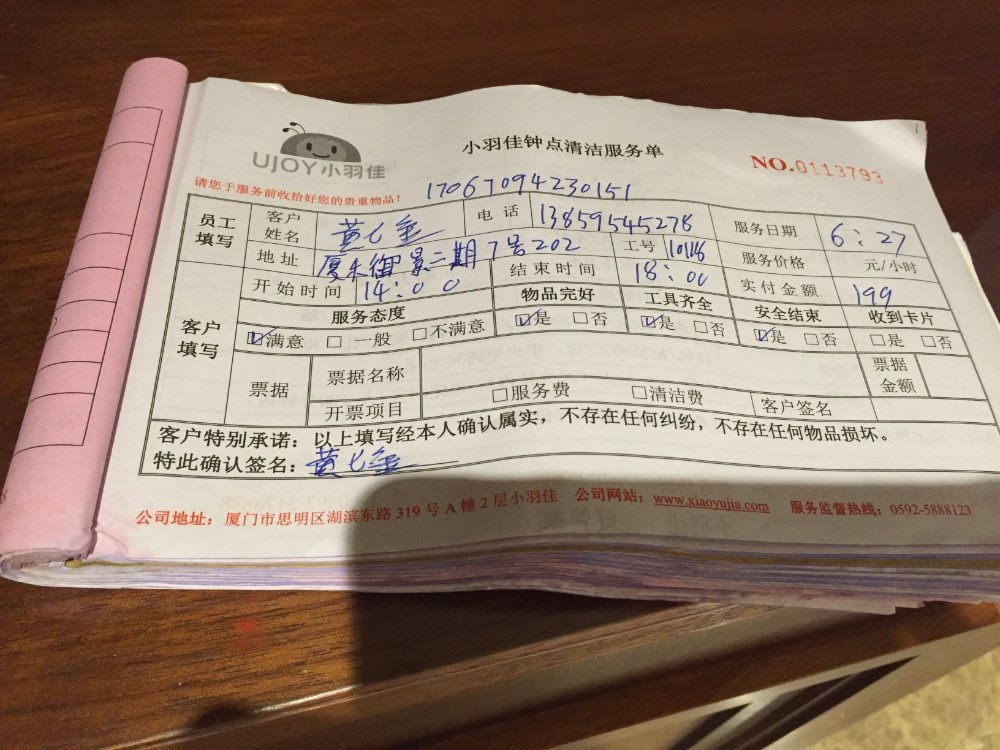 UJOY小羽佳
小羽佳钟点清洁服务单
NO.0113793
请您于服务前收拾好您的贵重物品!
17067094230151
员工填写 客户姓名 黄 电话 13859545278 服务日期 6:27
地址 御景二期7号202 工号 服务价格 元/小时
开始时间 14:00 结束时间 18:00 实付金额 199
客户填写 服务态度 物品完好 工具齐全 安全结束 收到卡片
☑满意 □一般 □不满意 ☑是 □否 ☑是 □否 ☑是 □否 □是 □否
票据 票据名称 票据金额
开票项目 □服务费 □清洁费 客户签名
客户特别承诺:以上填写经本人确认属实,不存在任何纠纷,不存在任何物品损坏。
特此确认签名: 黄
公司地址:厦门市思明区湖滨东路319号A幢2层小羽佳 公司网站:www.xiaoyujia.com 服务监督热线:0592-5888123